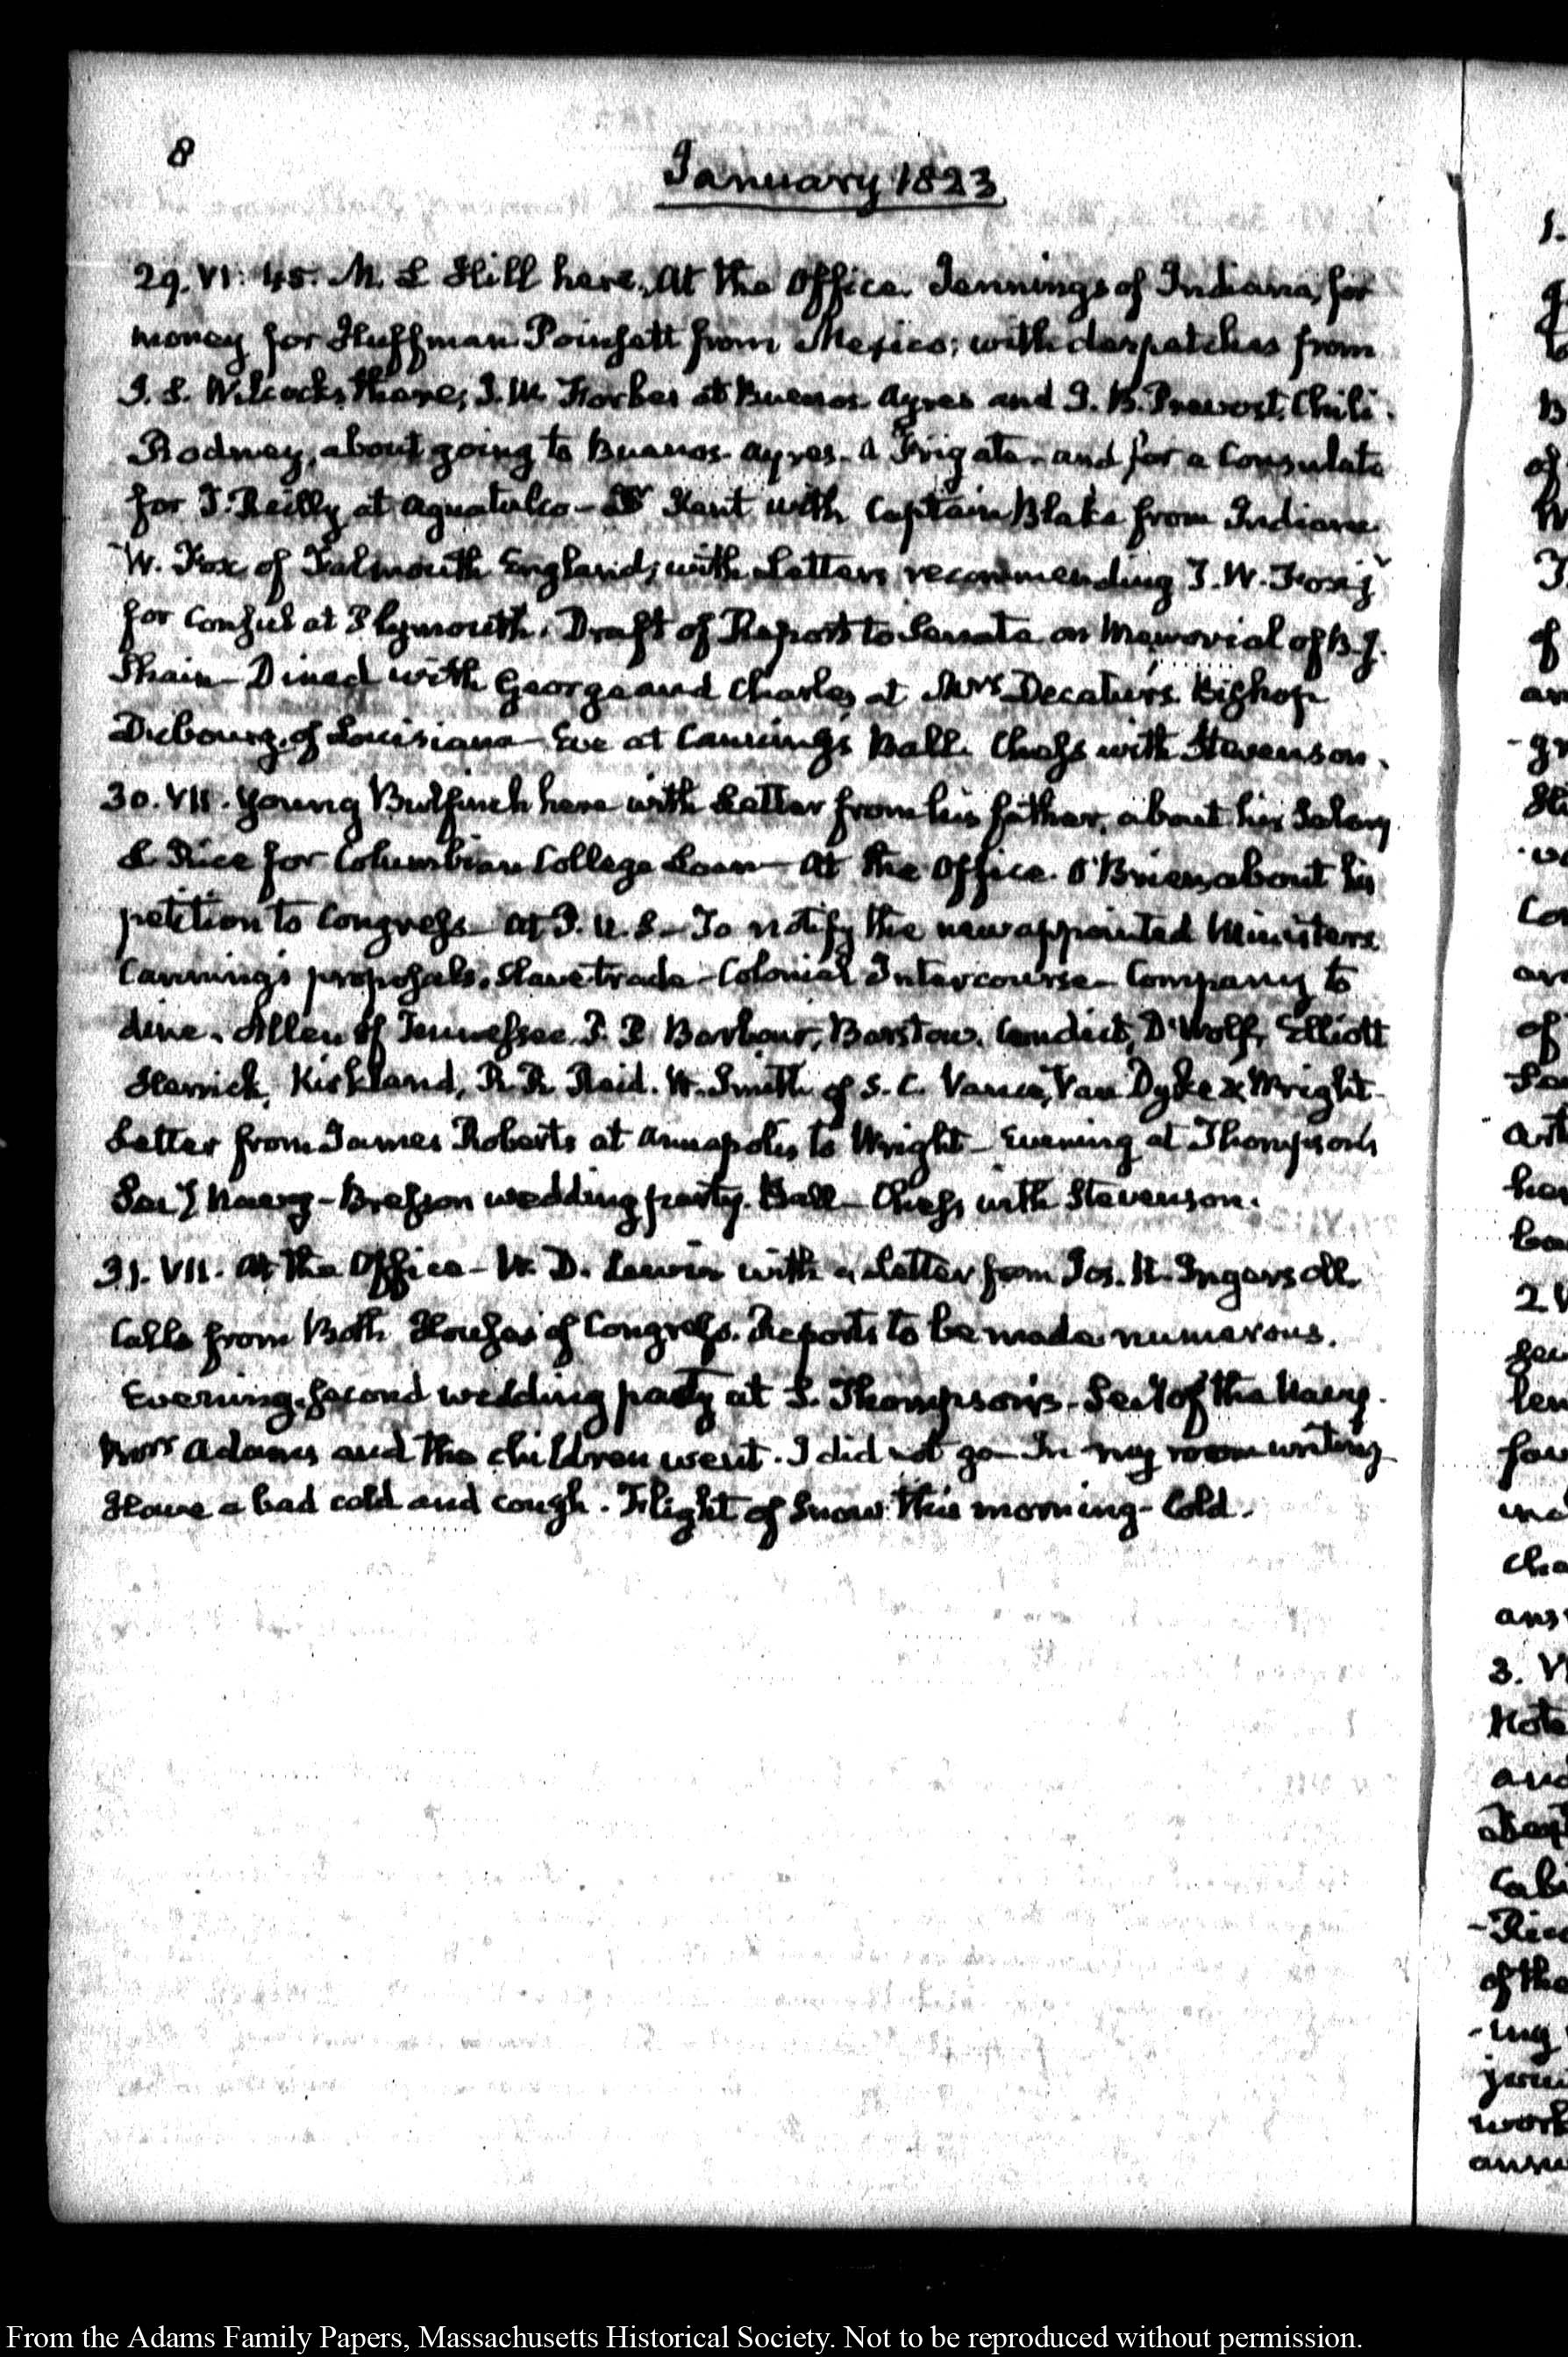 8
January 1823
29. VI: 45. M. L Hill here. At the Office. Jennings of Indiana, for
money for Huffman Poinsett from Mexico; with despatches from
J. S. Wilcocks there; J. M. Forbes at Buenos Ayres and J. B. Prevost. Chili.
Rodney, about going to Buenos-Ayres. A Frigate and for a Consulate
for J. Reilly at Aguatulco - Kent with Captain Blake from Indiana
W. Fox of Falmouth England; with Letters recommending T. W. Fox jr
for Consul at Plymouth. Draft of Report to Senate on Memorial of B. J.
Shain - Dined with George and Charles at Mrs Decatur's. Bishop
Dubourg, of Louisiana - Eve at Canning's Ball. Chess with Stevenson.
30. VII. Young Bulfinch here with Letter from his father, about his Salary
L Rice for Columbian College Loan - At the Office. O'Brien, about his
petition to Congress - At P. U. S. - To notify the new appointed Ministers
Canning's proposals. Slave trade - Colonial Intercourse - Company to
dine. Allen of Tennessee. P. P Barbour, Barstow. Condict, D'Wolf, Elliott
Herrick, Kirkland, R. R. Reid. W. Smith of S. C. Vance, Van Dyke & Wright
Letter from James Roberts at Annapolis to Wright - Evening at Thompson's
Secy Navy - Bresson wedding party. Ball - Chess with Stevenson.
31. VII. At the Office - W. D. Lewis with a Letter from Jos. R. Ingersoll.
Calls from Both Houses of Congress. Reports to be made numerous.
Evening, second wedding party at S. Thompson's - Secy of the Navy.
Mrs Adams and the children went. I did not go - In my room writing
Have a bad cold and cough. Flight of Snow this morning - Cold.
From the Adams Family Papers, Massachusetts Historical Society. Not to be reproduced without permission.